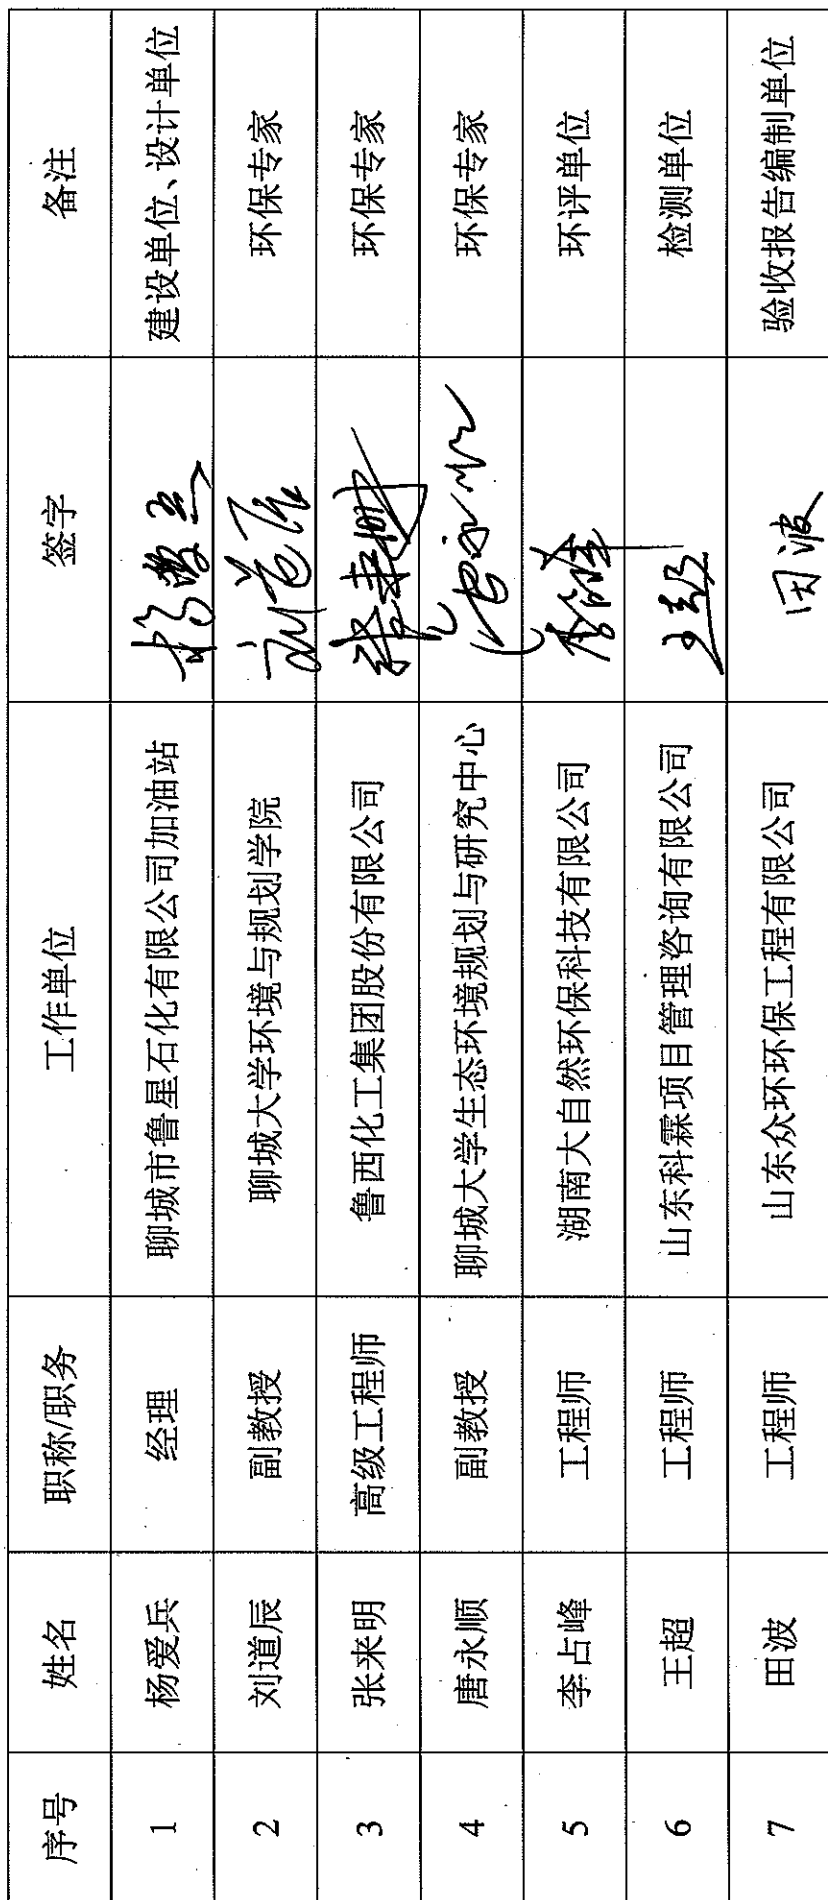 序号 姓名 职称/职务 工作单位 签字 备注
1 杨爱兵 经理 聊城市鲁星石化有限公司加油站 杨爱兵 建设单位、设计单位
2 刘道辰 副教授 聊城大学环境与规划学院 刘道辰 环保专家
3 张来明 高级工程师 鲁西化工集团股份有限公司 张来明 环保专家
4 唐永顺 副教授 聊城大学生态环境规划与研究中心 唐永顺 环保专家
5 李占峰 工程师 湖南大自然环保科技有限公司 李占峰 环评单位
6 王超 工程师 山东科霖项目管理咨询有限公司 王超 检测单位
7 田波 工程师 山东众环环保工程有限公司 田波 验收报告编制单位